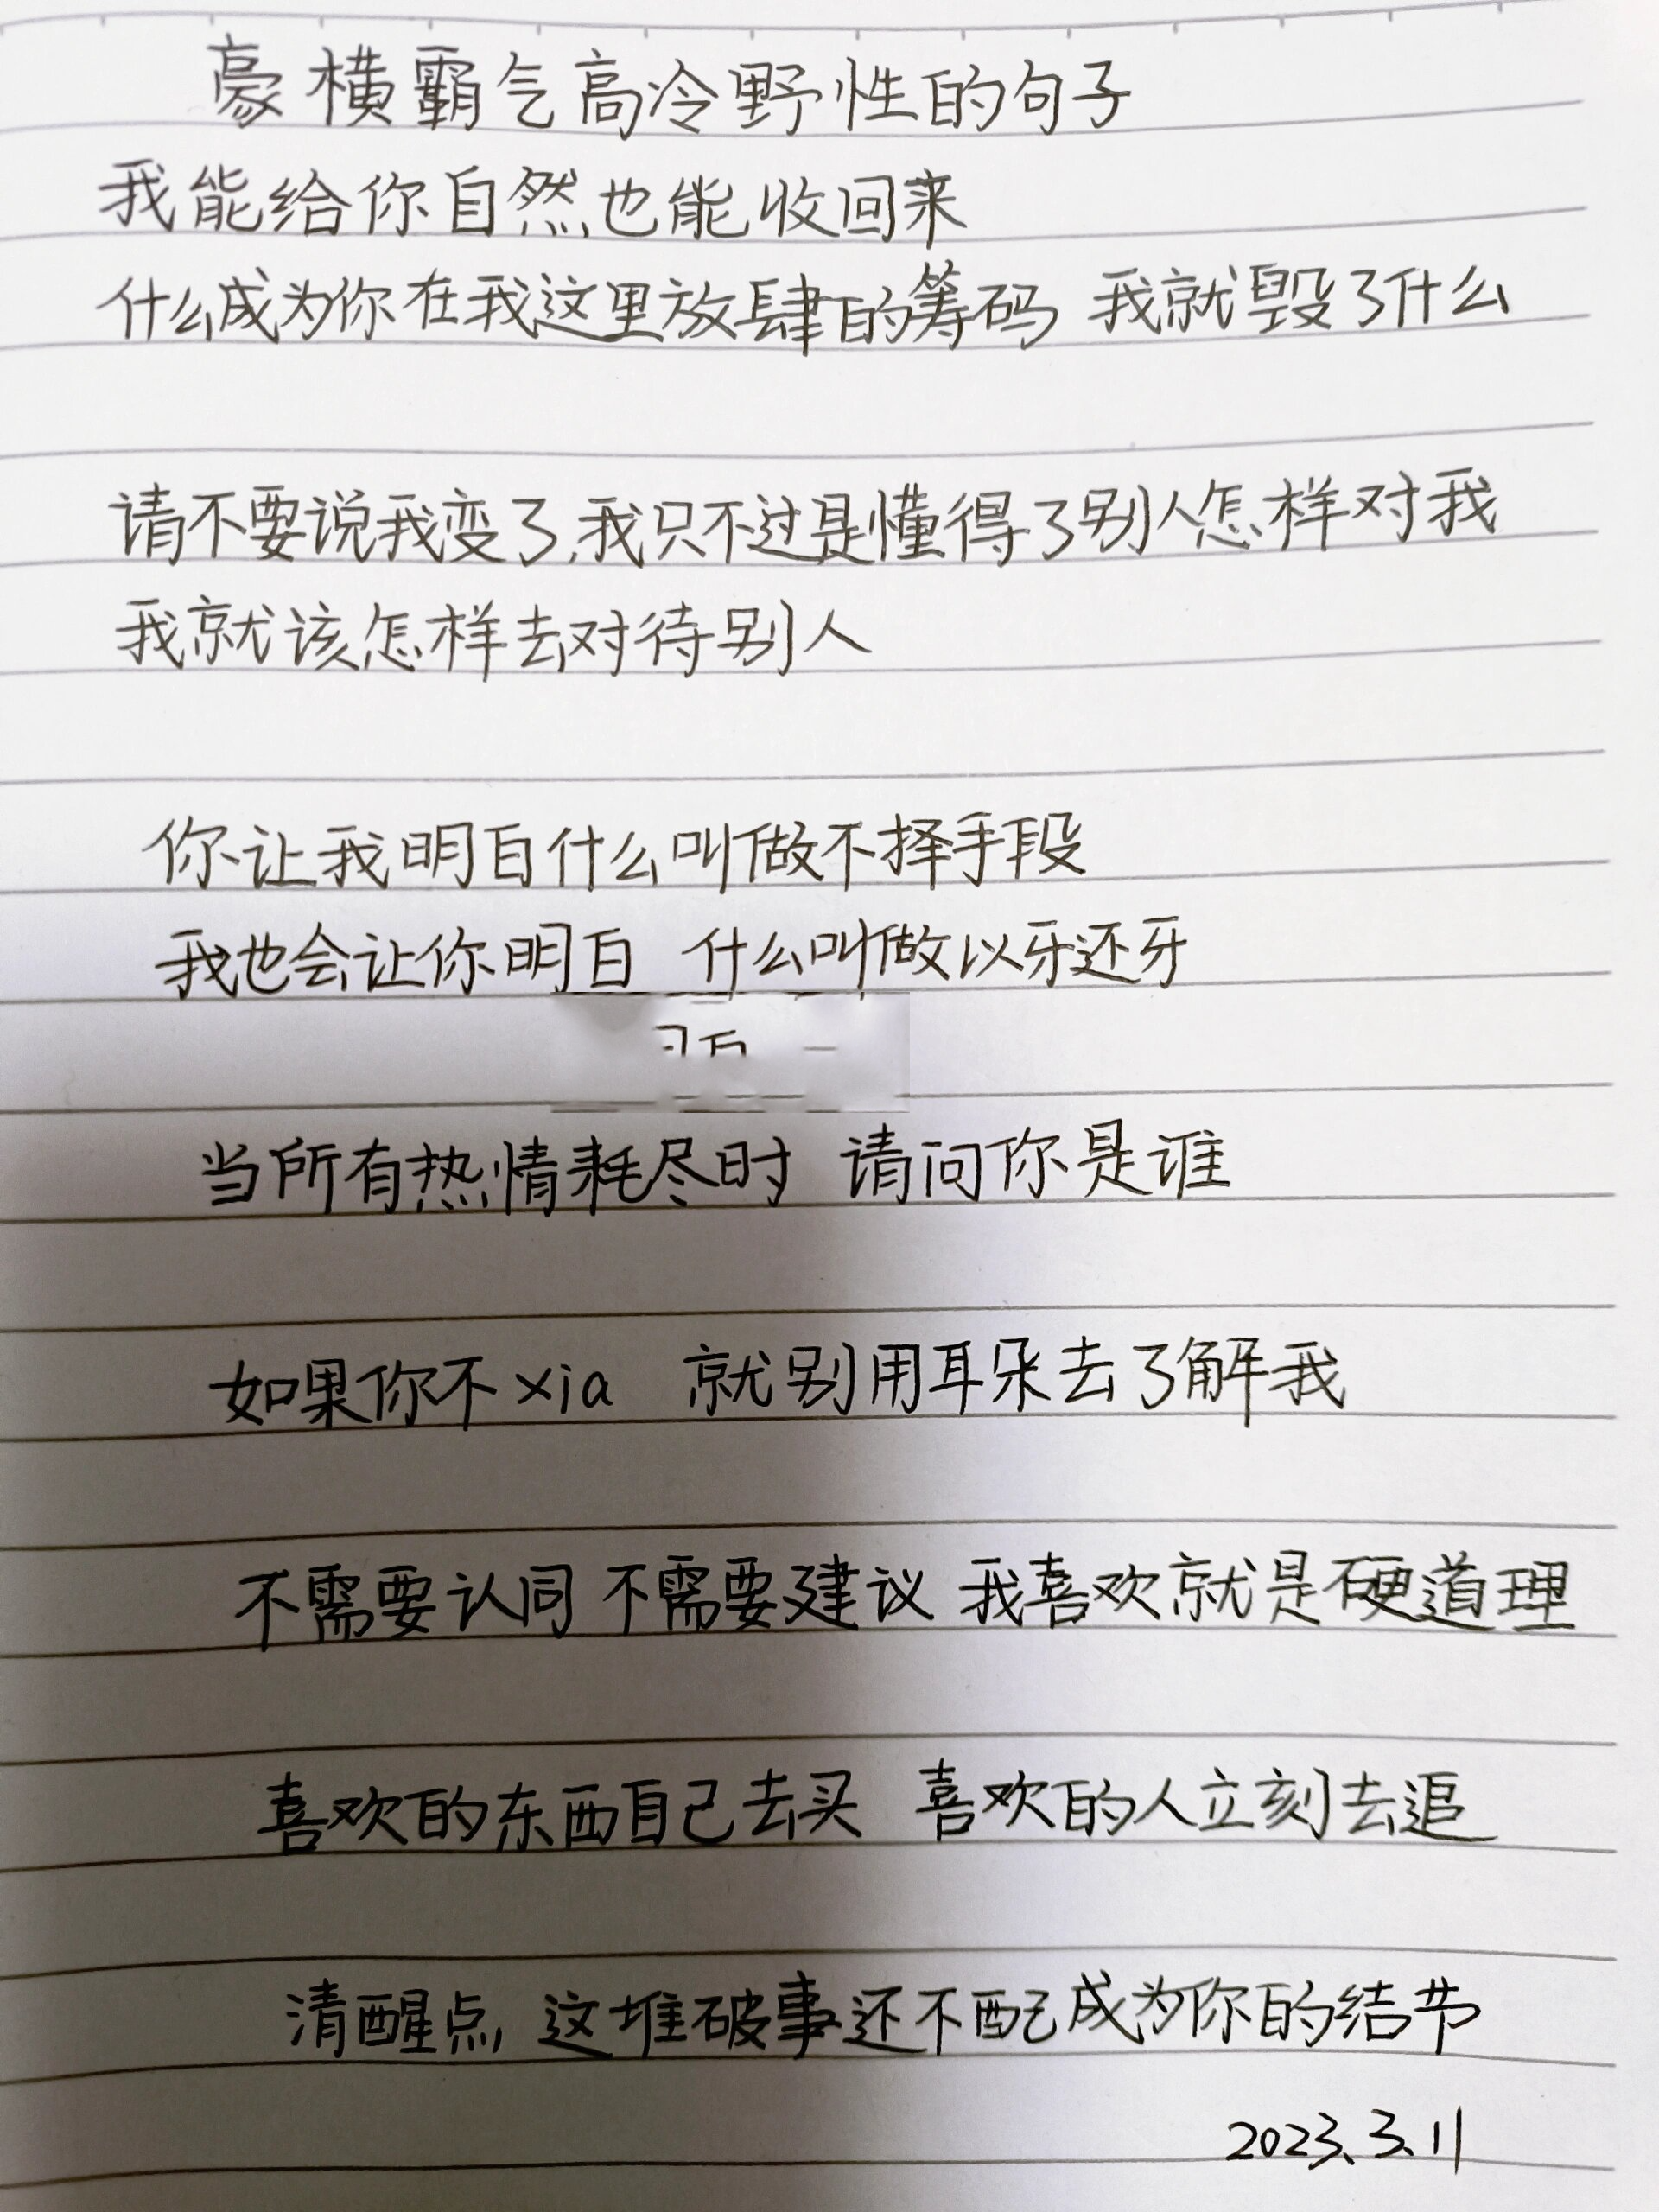 豪横霸气高冷野性的句子
我能给你自然也能收回来
什么成为你在我这里放肆的筹码 我就毁了什么
请不要说我变了,我只不过是懂得了别人怎样对我
我就该怎样去对待别人
你让我明白什么叫做不择手段
我也会让你明白 什么叫做以牙还牙
当所有热情耗尽时 请问你是谁
如果你不xia 就别用耳朵去了解我
不需要认同 不需要建议 我喜欢就是硬道理
喜欢的东西自己去买 喜欢的人立刻去追
清醒点, 这堆破事还不配成为你的结节
2023.3.11